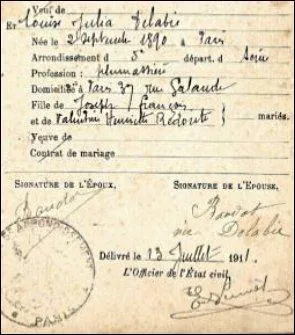 Veuf de
Et Louise Julia Delabie
Née le 2 Septembre 1890 à Paris
Arrondissement d 5e départ. d Seine
Profession : plumassière
Domiciliée Paris 37 rue Galande
Fille de Joseph François
et de Valentine Henriette Redouté } mariés.
Veuve de
Contrat de mariage
SIGNATURE DE L'ÉPOUX, SIGNATURE DE L'ÉPOUSE,
née Delabie
Délivré le 13 Juillet 1911.
L'Officier de l'État civil,
PARIS